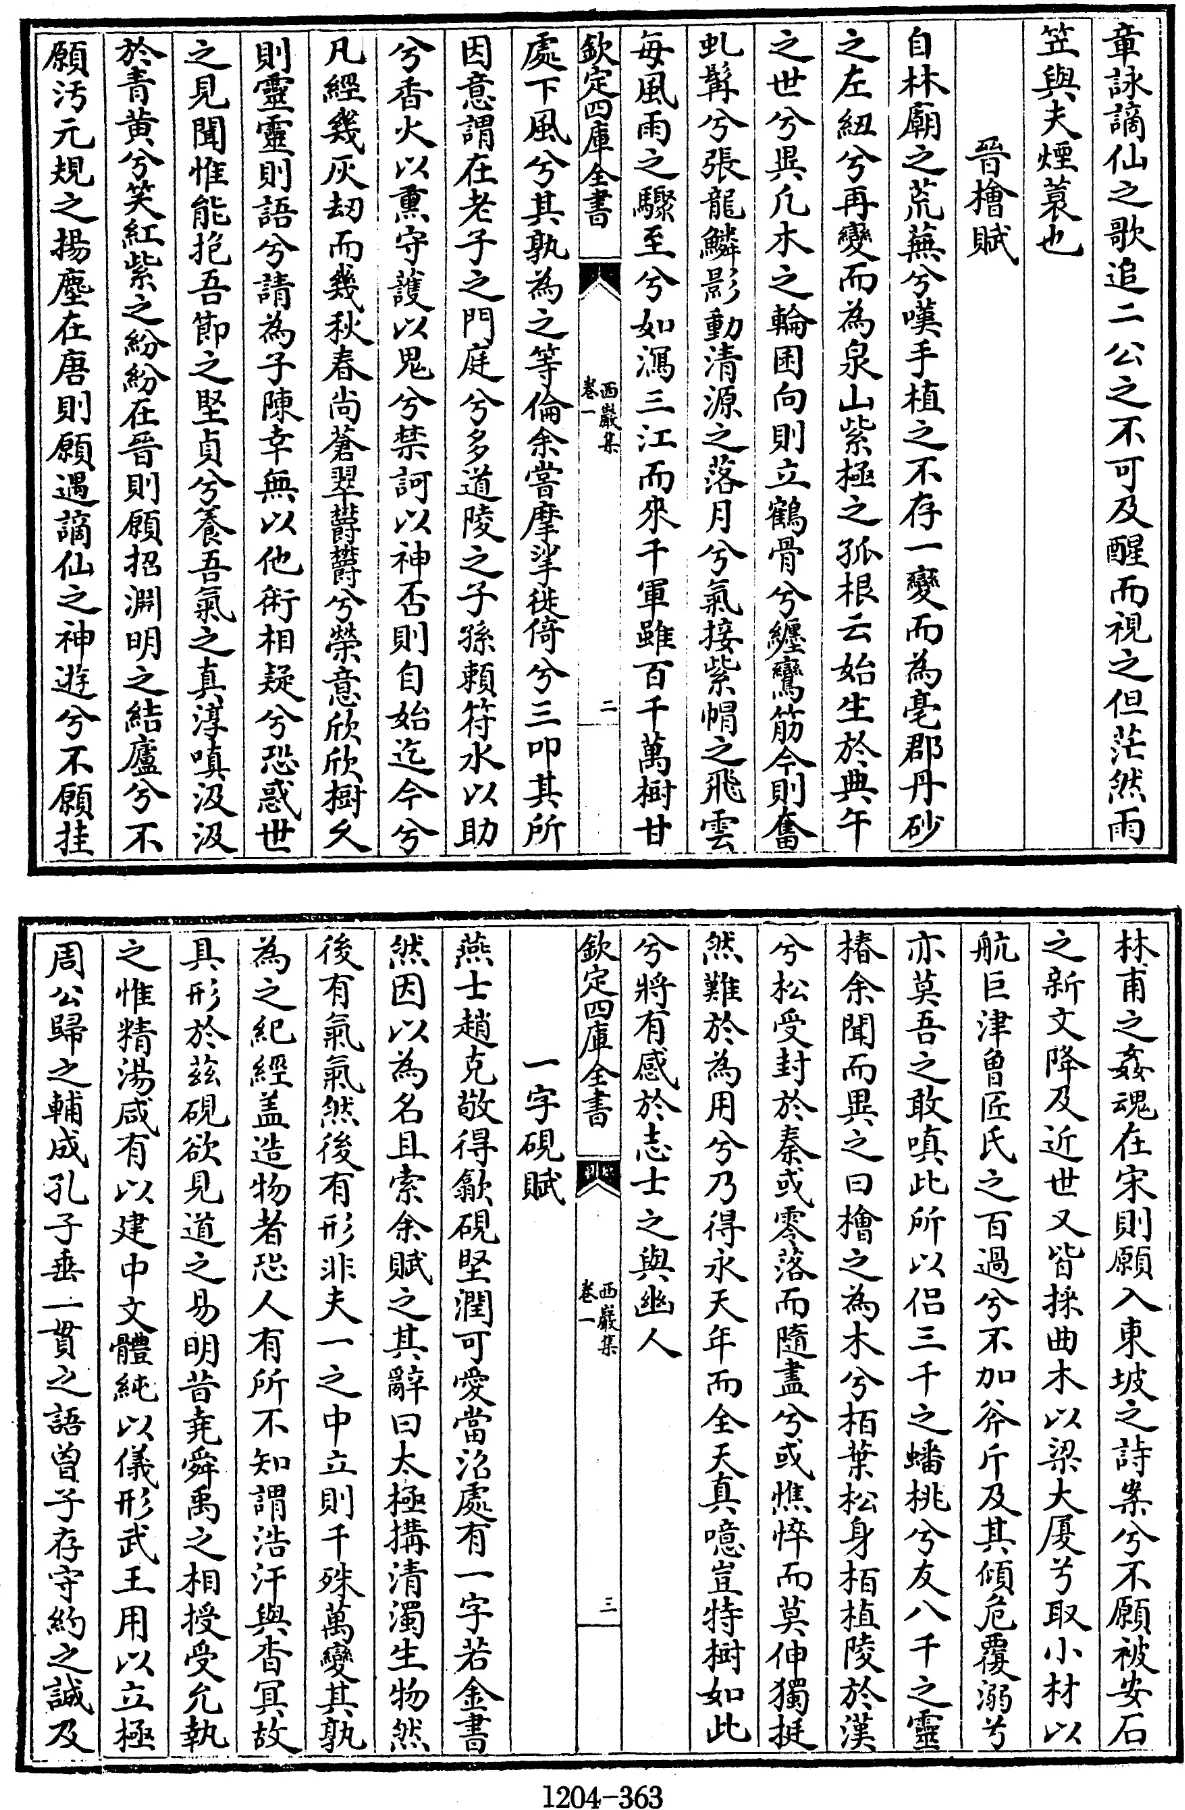 章詠謫仙之歌追二公之不可及醒而視之但茫然雨
笠與夫煙蓑也
晉檜賦
自林廟之荒蕪兮嘆手植之不存一變而為亳郡丹砂
之左紐兮再變而為泉山紫極之孤根云始生於典午
之世兮異凡木之輪囷向則立鶴骨兮纒鸞筋今則奮
虬髯兮張龍鱗影動清源之落月兮氣接紫帽之飛雲
每風雨之驟至兮如瀉三江而來千軍雖百千萬樹甘
欽定四庫全書
西巖集
卷一
二
處下風兮其孰為之等倫余嘗摩挲徙倚兮三叩其所
因意謂在老子之門庭兮多道陵之子孫賴符水以助
兮香火以熏守護以鬼兮禁訶以神否則自始迄今兮
凡經幾灰刼而幾秋春尚蒼翠欝欝兮榮意欣欣樹乆
則靈靈則語兮請為子陳幸無以他術相疑兮恐惑世
之見聞惟能抱吾節之堅貞兮養吾氣之真淳嗔汲汲
於青黃兮笑紅紫之紛紛在晉則願招淵明之結廬兮不
願汚元規之揚塵在唐則願遇謫仙之神遊兮不願挂
林甫之姦魂在宋則願入東坡之詩案兮不願被安石
之新文降及近世又皆採曲木以梁大厦兮取小材以
航巨津曽匠氏之百過兮不加斧斤及其傾危覆溺兮
亦莫吾之敢嗔此所以侣三千之蟠桃兮友八千之靈
椿余聞而異之曰檜之為木兮栢葉松身栢植陵於漢
兮松受封於秦或零落而隨盡兮或憔悴而莫伸獨挺
然難於為用兮乃得永天年而全天真噫豈特樹如此
兮將有感於志士之與幽人
欽定四庫全書
西巖集
卷一
三
一字硯賦
燕士趙克敬得歙硯堅潤可愛當沼處有一字若金書
然因以為名且索余賦之其辭曰太極搆清濁生物然
後有氣氣然後有形非夫一之中立則千殊萬變其孰
為之紀經盖造物者恐人有所不知謂浩汗與杳冥故
具形於茲硯欲見道之易明昔堯舜禹之相授受允執
之惟精湯咸有以建中文體純以儀形武王用以立極
周公歸之輔成孔子垂一貫之語曾子存守約之誠及
1204-363